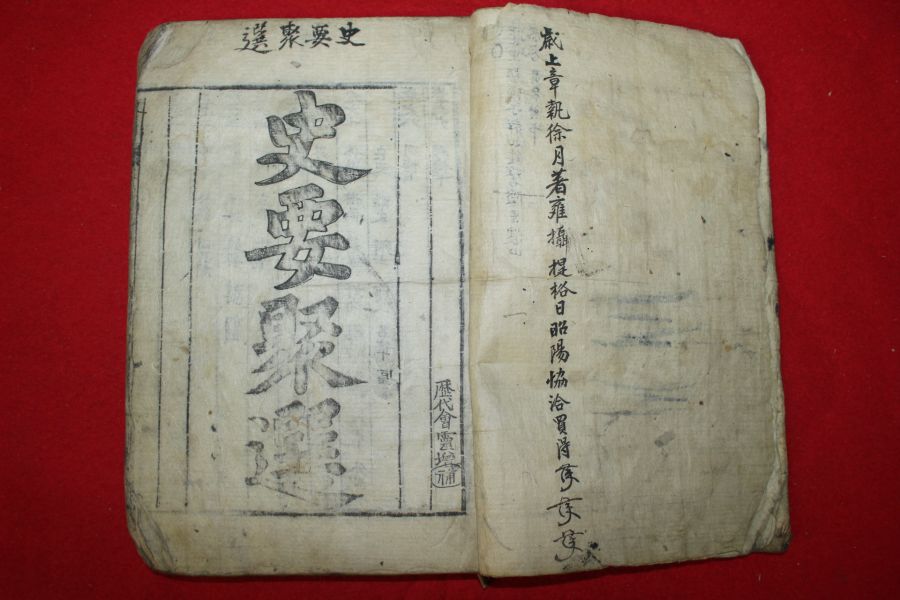 歲上章執徐月著雍攝提格日昭陽協洽買得
史要聚選
史要聚選
歷代會靈增補